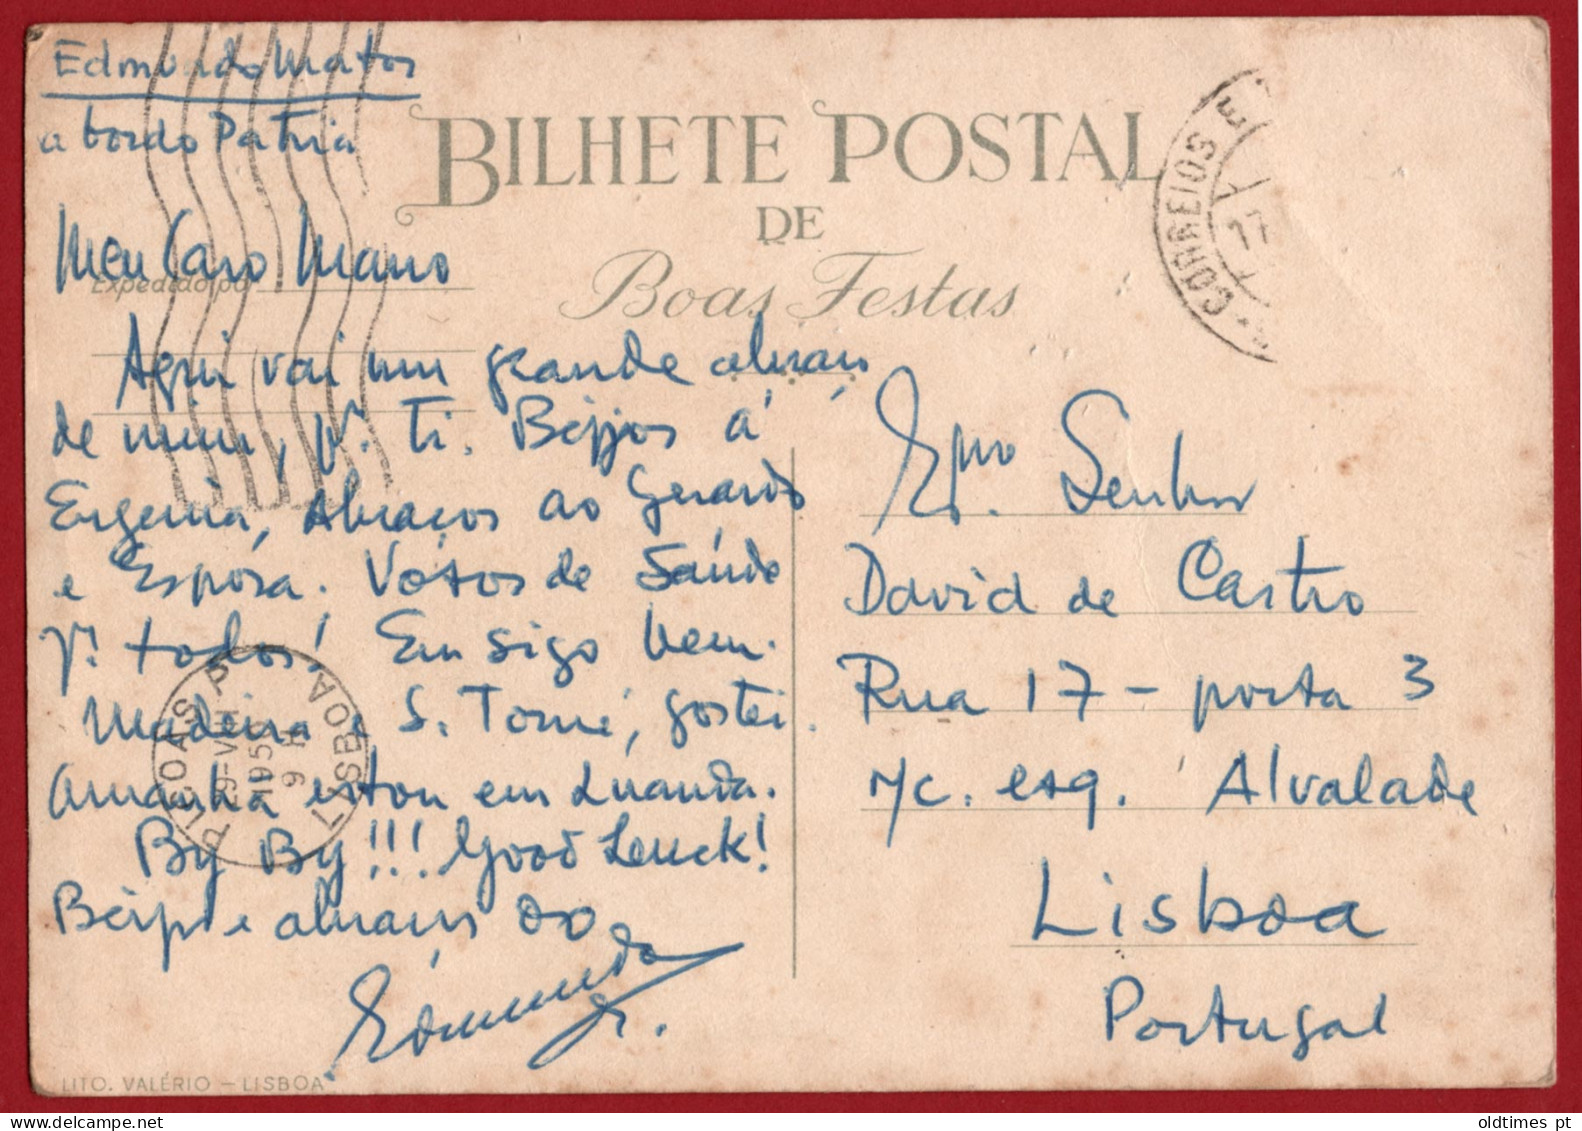 Edmundo Matos
a bordo Patria
BILHETE POSTAL
DE
Boas Festas
CORREIOS E
17
Meu Caro Mano
Expedido por
Aqui vai um grande abraço
de mim, pª. Ti. Beijos á
Eugenia, Abraços ao Gerardo
e Espósa. Votos de Saúde
pª. todos! Eu sigo bem.
Madeira e S. Tomé, gostei.
Amanhã estou em Luanda.
By By!!! Good Leuck!
e abraços do
Edmundo
Exmo. Senhor
David de Castro
Rua 17 - porta 3
r/c. esq. Alvalade
Lisboa
Portugal
LISBOA
9 H
LITO. VALÉRIO - LISBOA
oldtimes pt